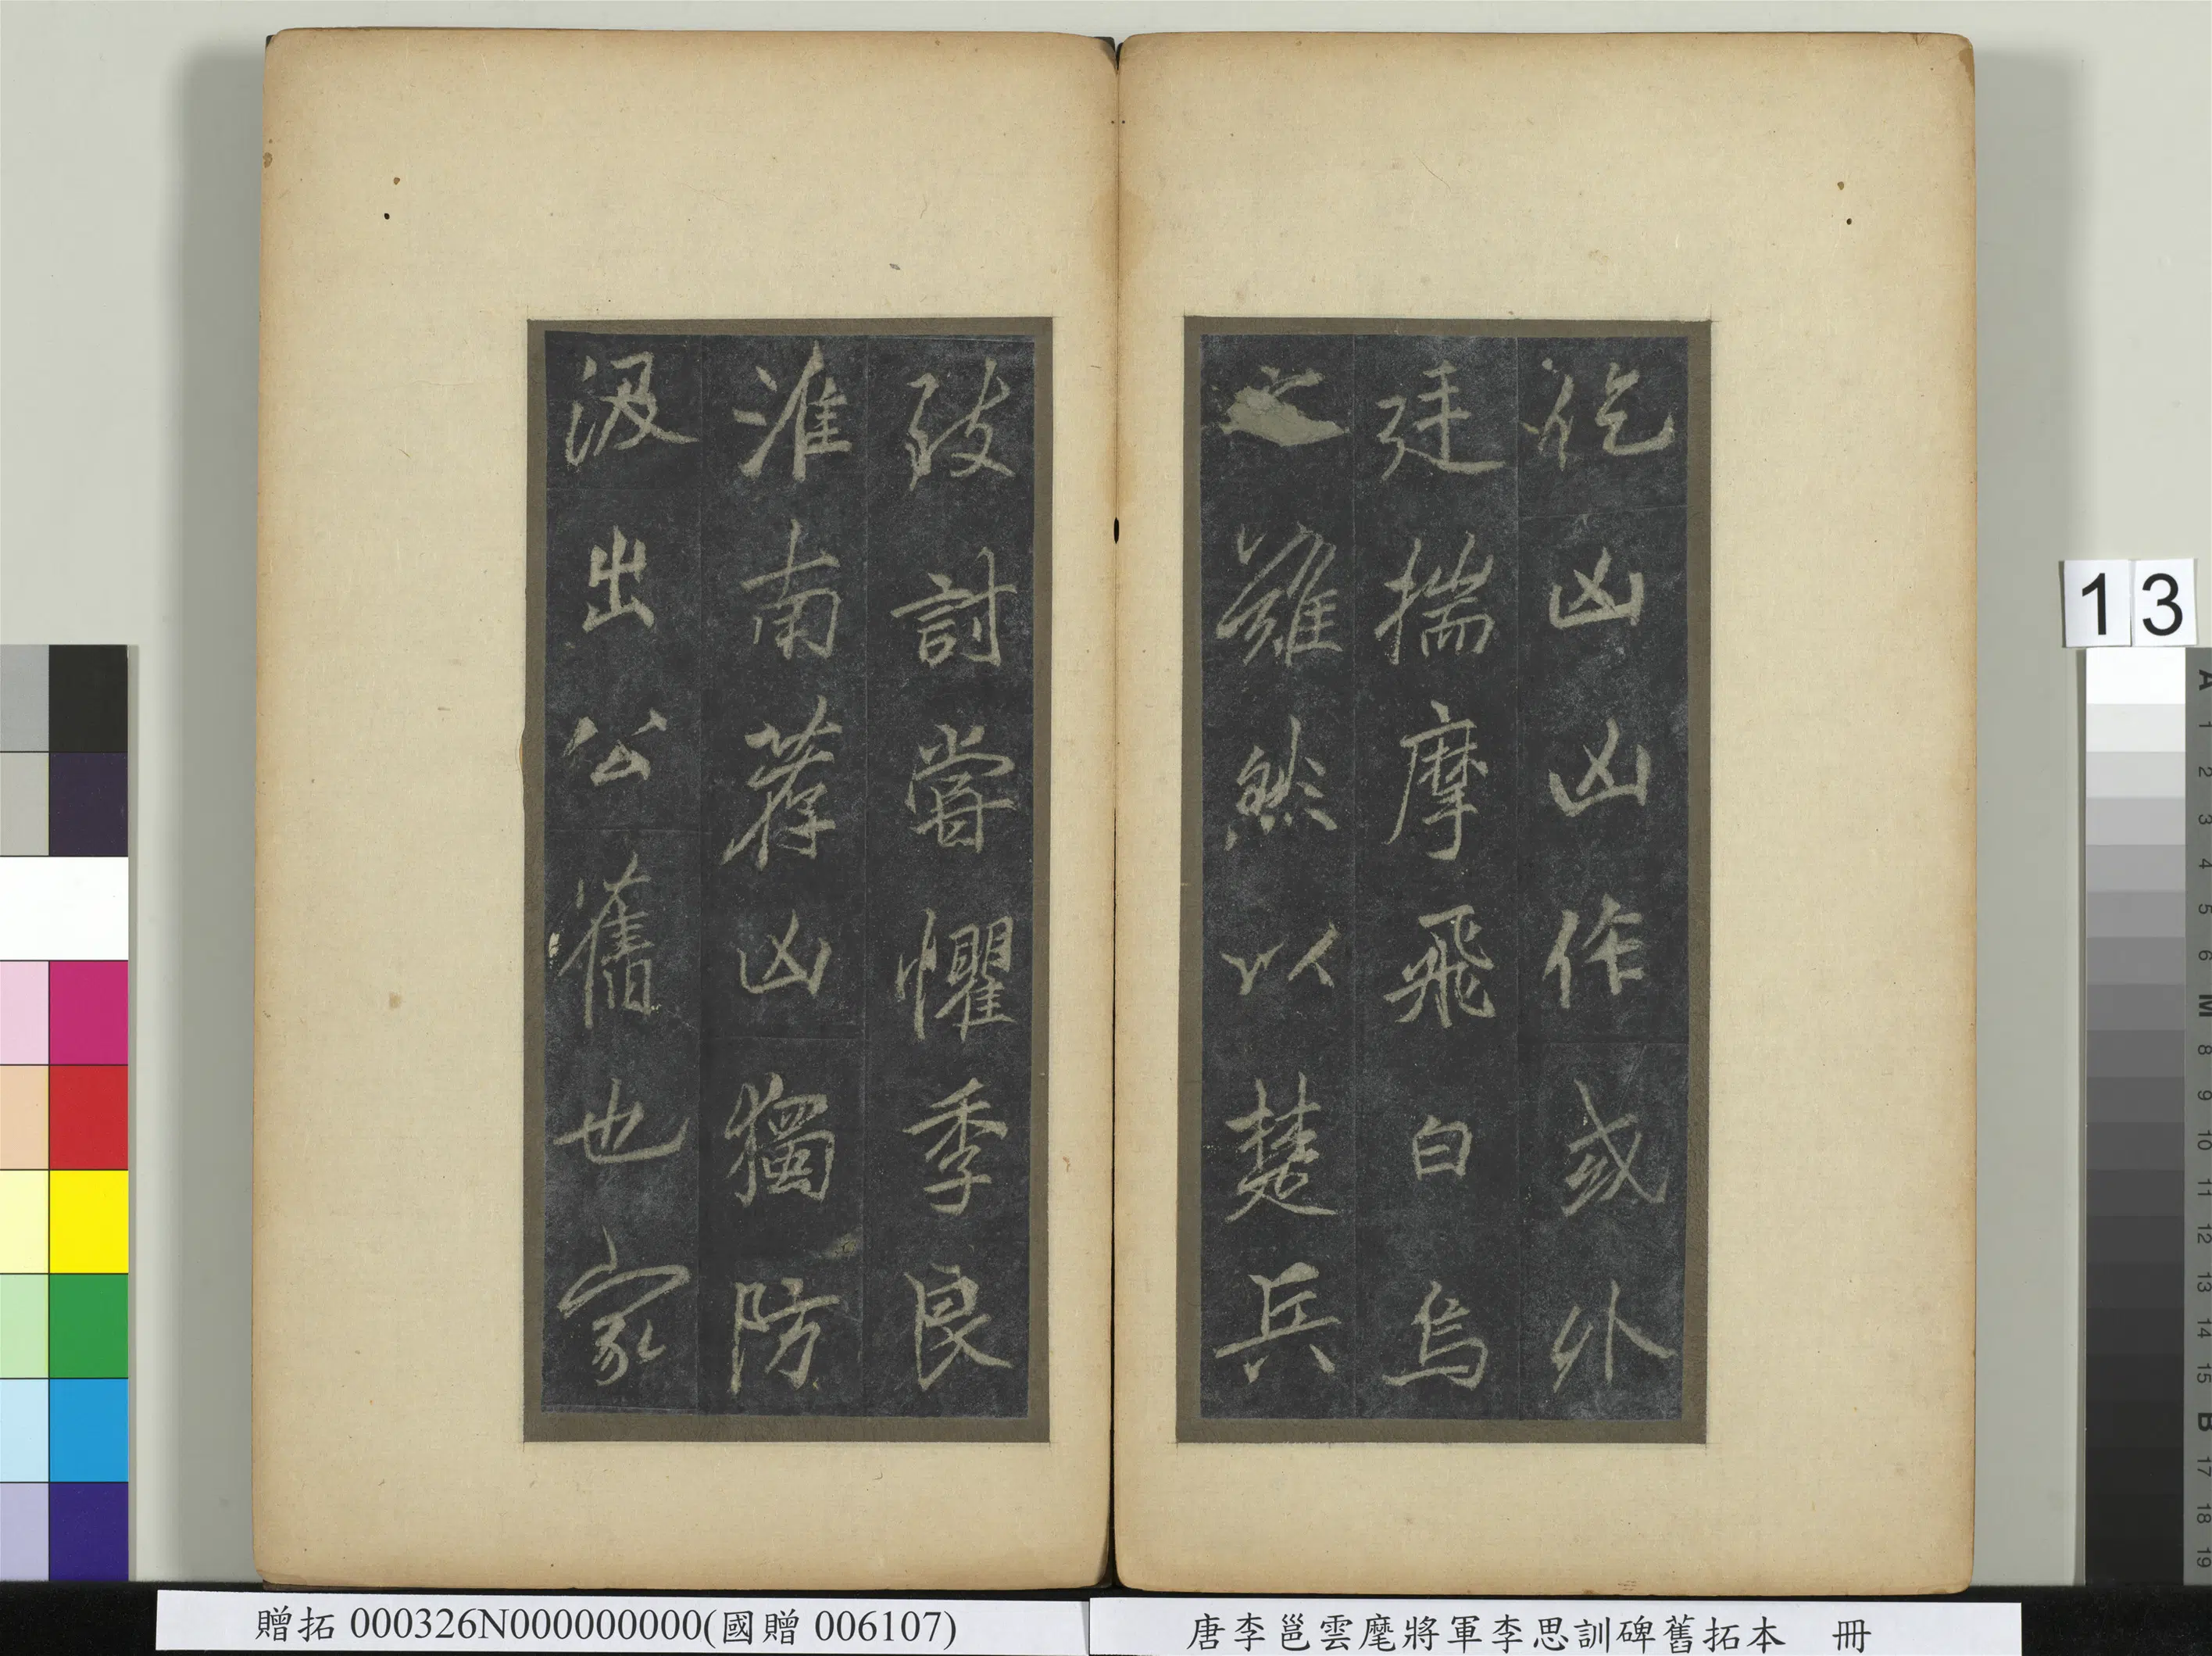 仡凶凶作或外
廷揣摩飛白烏
雖然以楚兵
致討嘗懼季良
淮南荐凶獨防
汲出公舊也家
13
贈拓 000326N000000000(國贈 006107)
唐李邕雲麾將軍李思訓碑舊拓本 冊
A 1 2 3 4 5 6 M 8 9 10 11 12 13 14 15 B 17 18 19